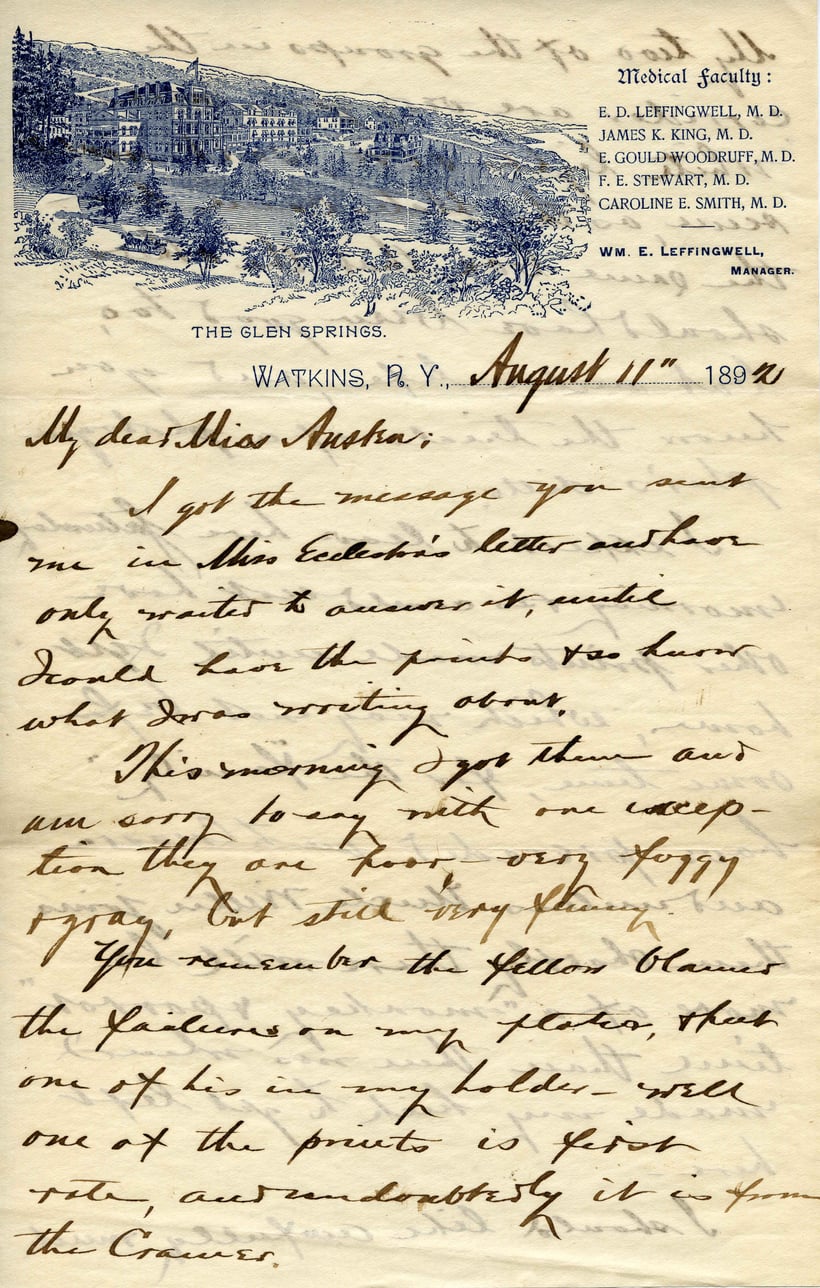 Medical Faculty:
E. D. LEFFINGWELL, M. D.
JAMES K. KING, M. D.
E. GOULD WOODRUFF, M. D.
F. E. STEWART, M. D.
CAROLINE E. SMITH, M. D.
WM. E. LEFFINGWELL,
MANAGER.
THE GLEN SPRINGS.
WATKINS, N. Y., August 11" 1892
My dear Miss Austen:
I got the message you sent
me in Miss Eccleston's letter and have
only waited to answer it, until
I could have the prints & so know
what I was writing about.
This morning I got them and
am sorry to say with one excep-
tion they are poor, very foggy
& gray, but still very funny.
You remember the fellow blamed
the failures on my plates, & put
one of his in my holder - well
one of the prints is first
rate, and undoubtedly it is from
the Cramer.